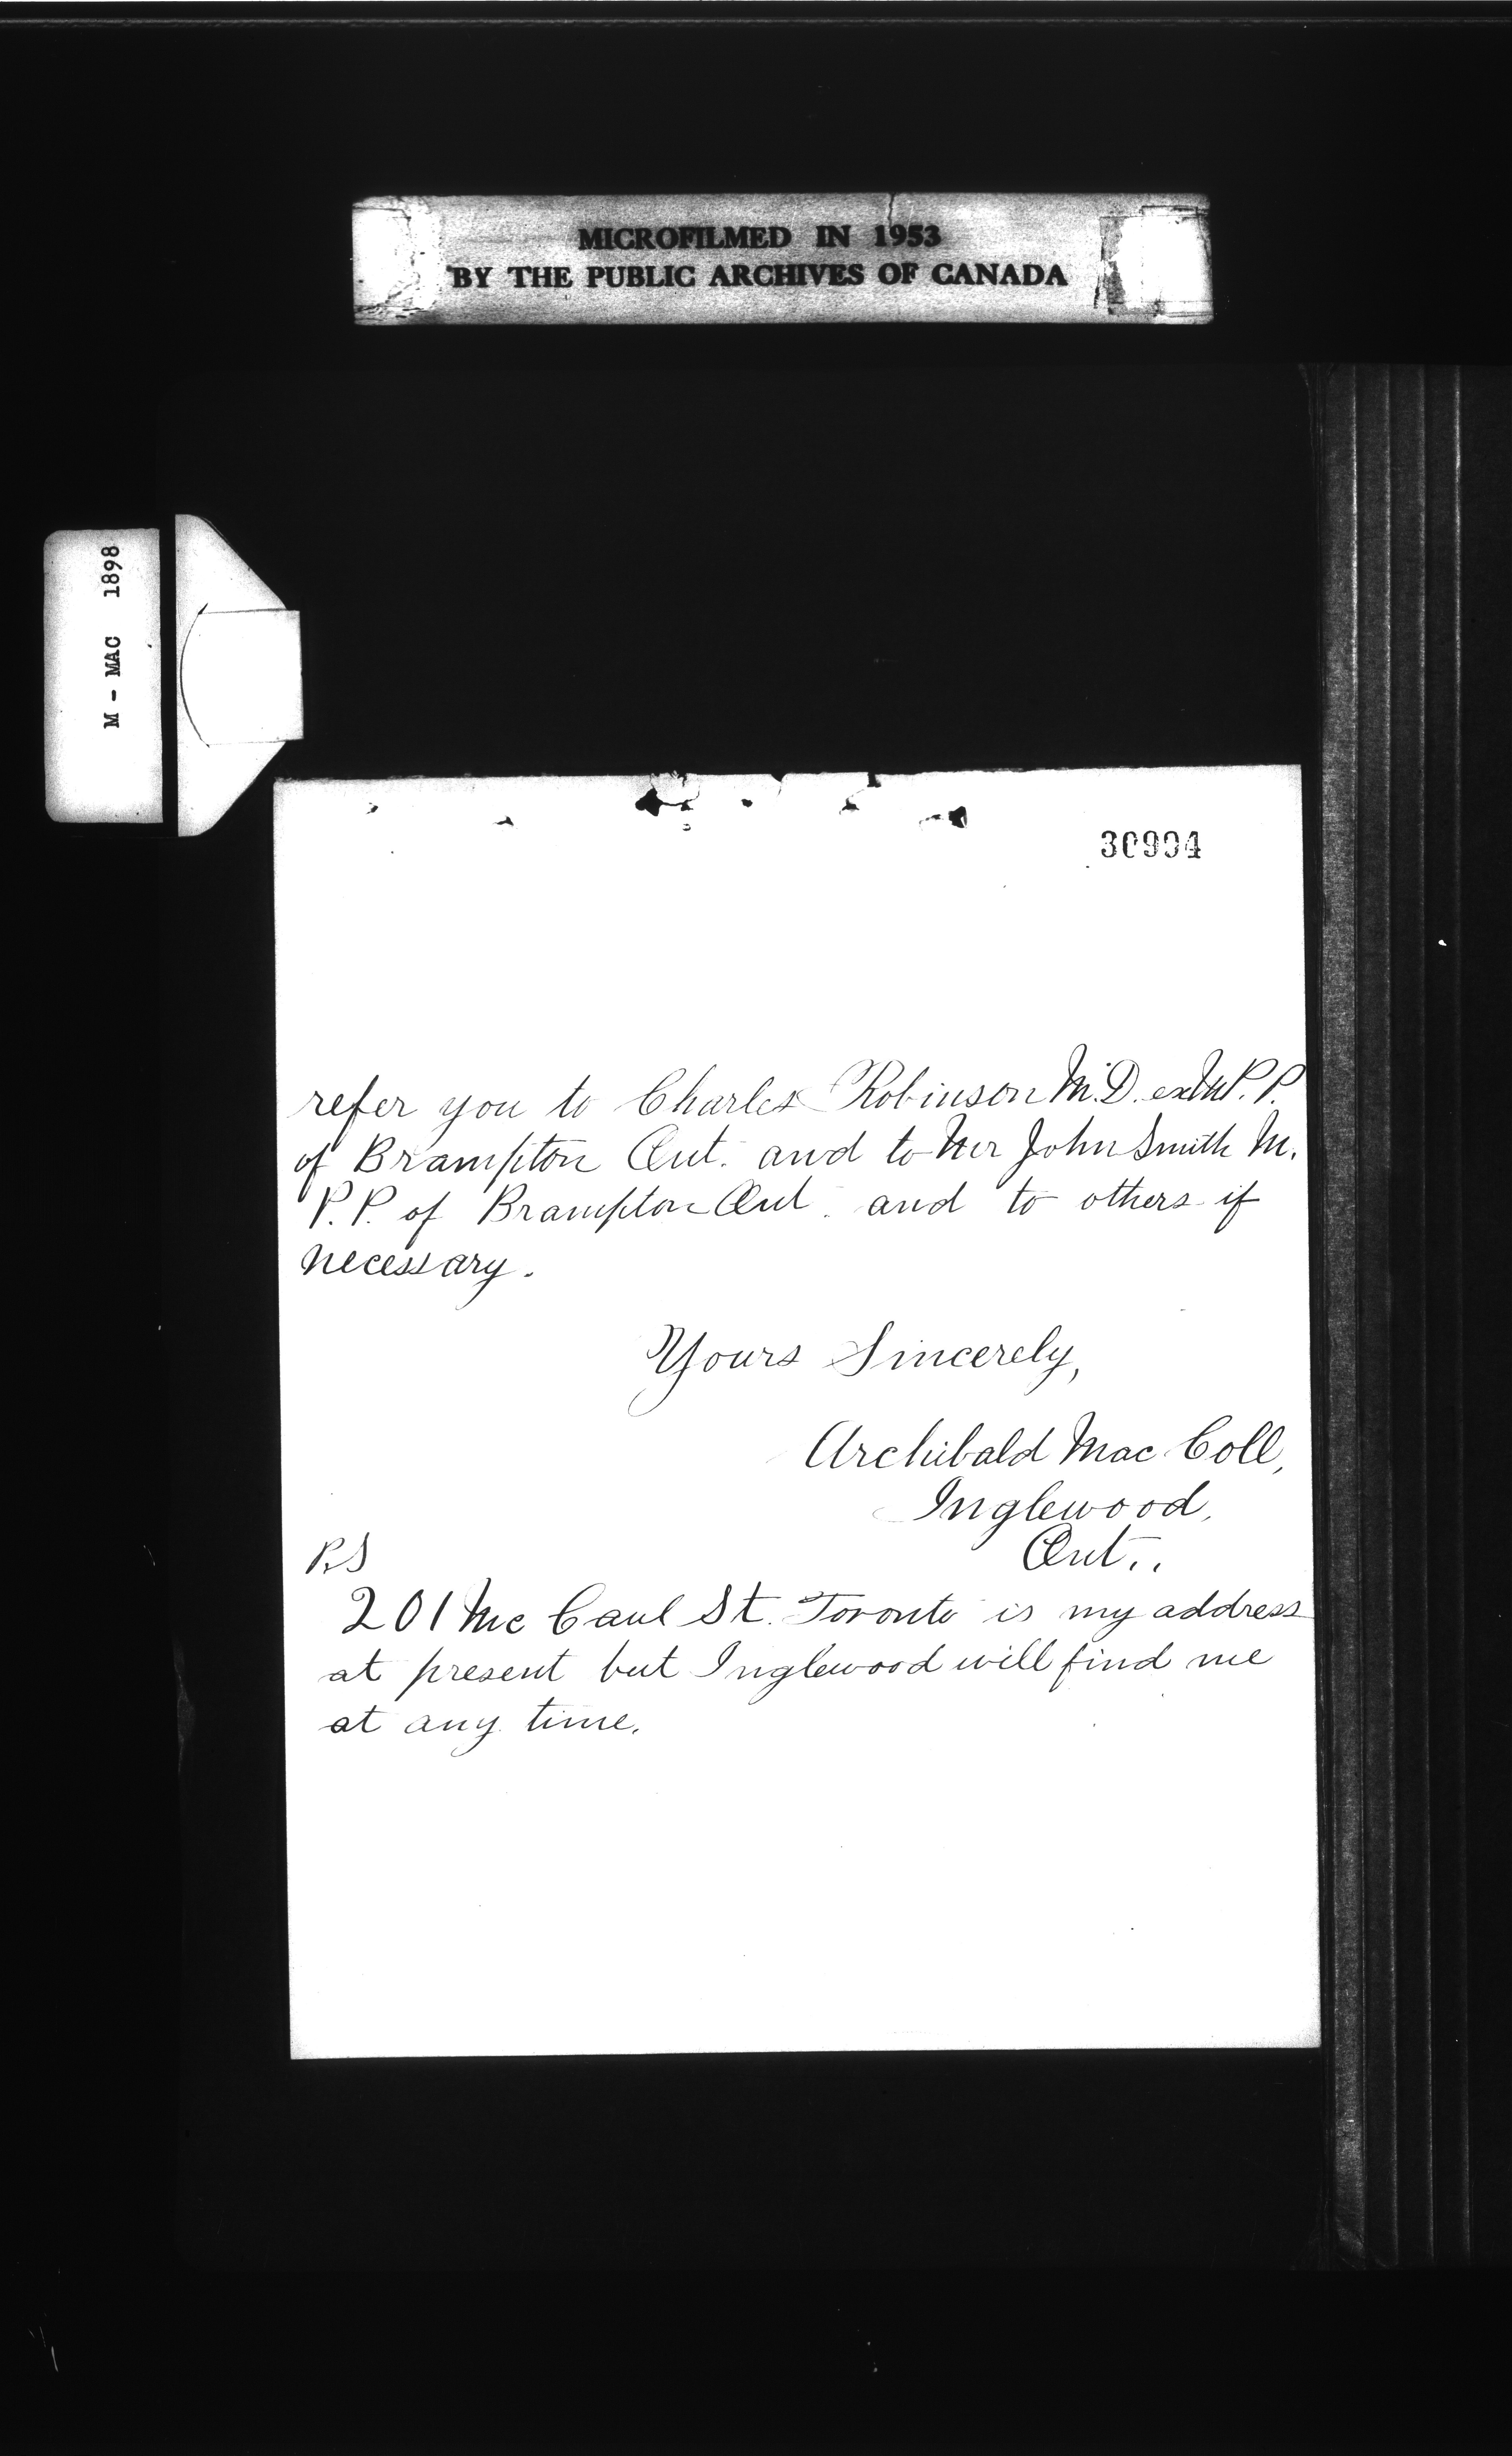 MICROFILMED IN 1953
BY THE PUBLIC ARCHIVES OF CANADA
M - MAC 1898
30994
refer you to Charles Robinson M.D. ex M.P.P.
of Brampton Ont. and to Mr John Smith M.
P.P. of Brampton Ont. and to others if
necessary.
Yours Sincerely,
Archibald Mac Coll,
Inglewood,
Ont..
P.S
201 Mc Caul St. Toronto is my address
at present but Inglewood will find me
at any time.